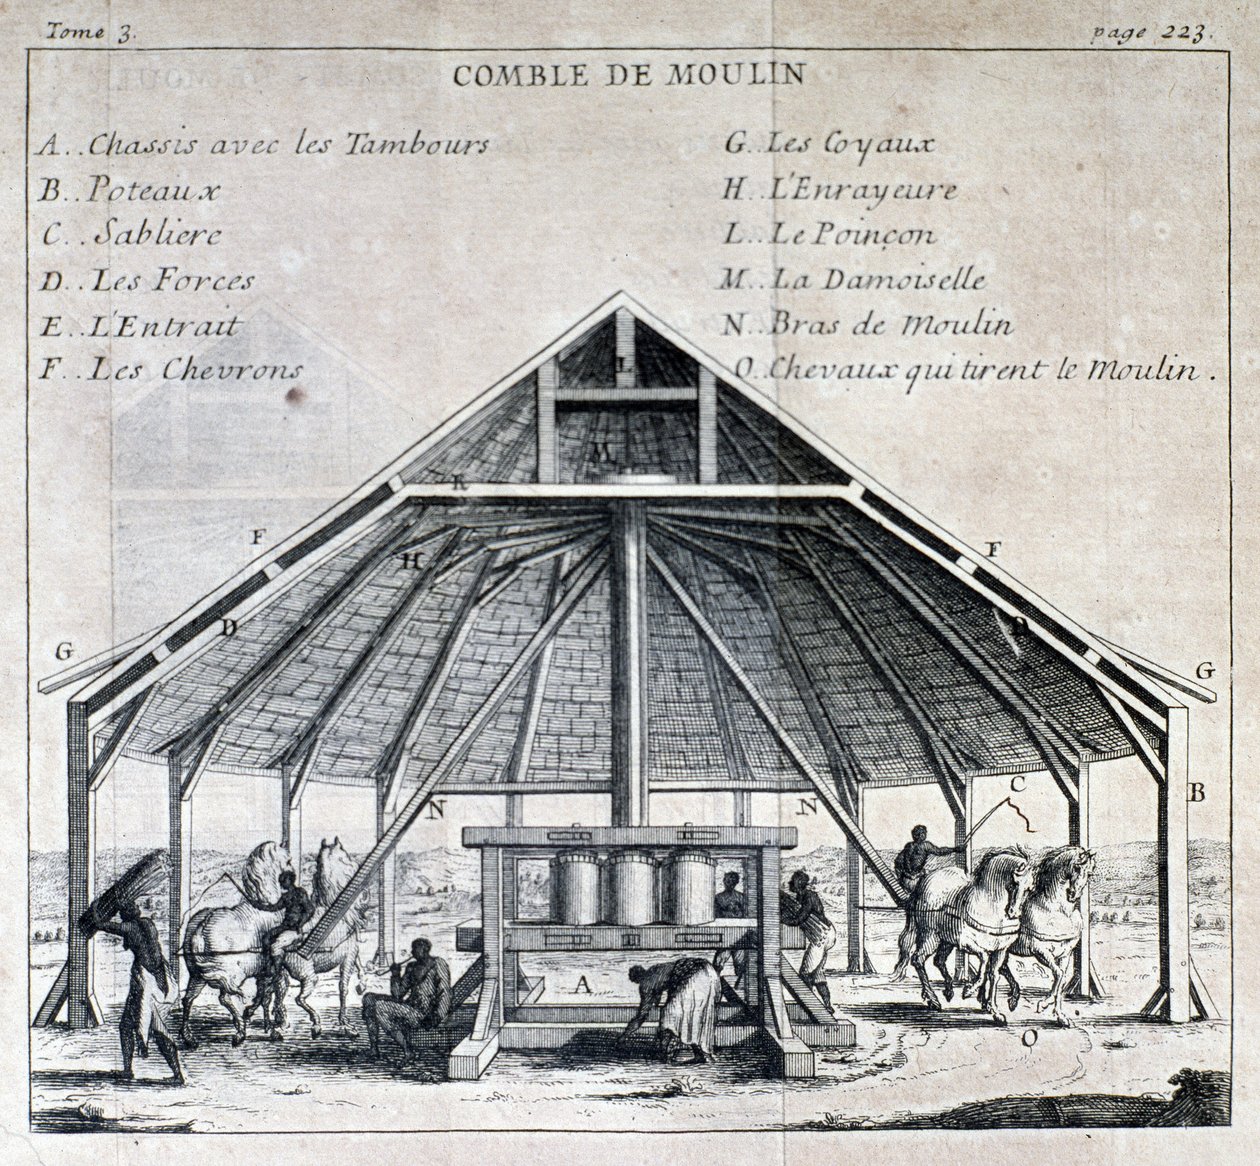 Tome 3. page 223.
COMBLE DE MOULIN
A..Chassis avec les Tambours
B..Poteaux
C..Sabliere
D..Les Forces
E..L'Entrait
F..Les Chevrons
G..Les Coyaux
H..L'Enrayeure
L..Le Poinçon
M..La Damoiselle
N..Bras de Moulin
O..Chevaux qui tirent le Moulin.
L
M
R
F F
H
D D
G G
C
B
N N
A
O